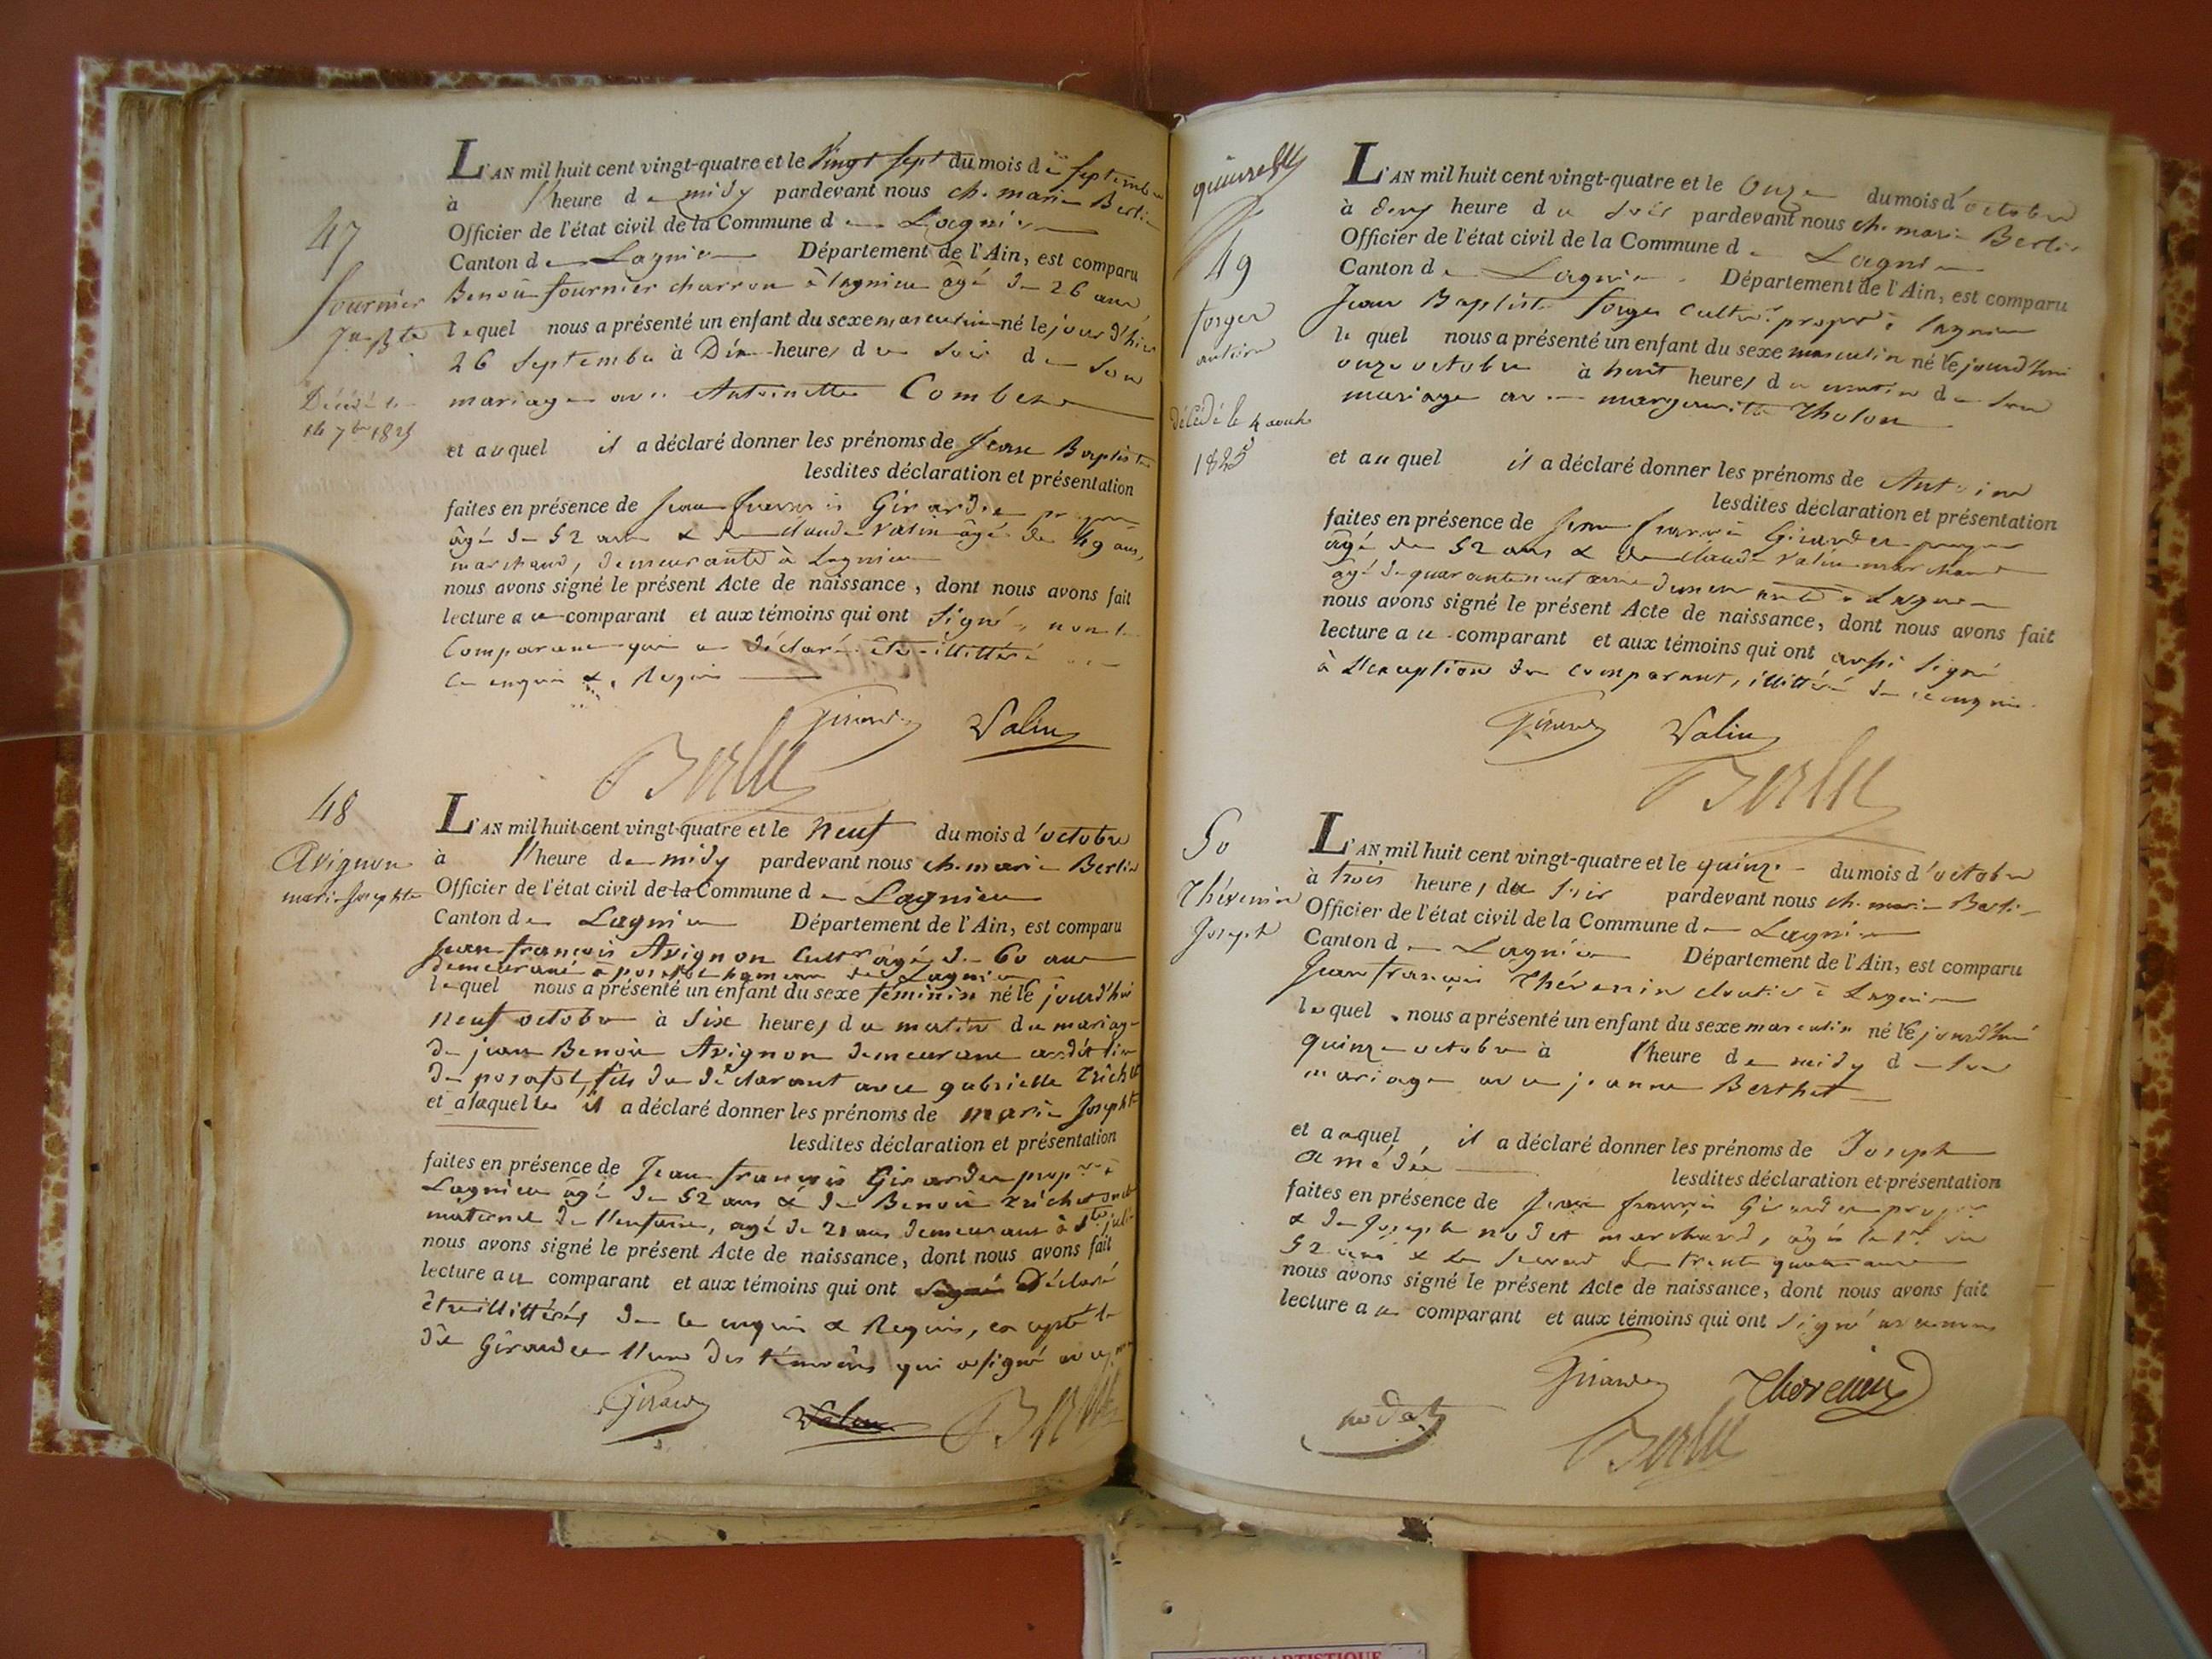 47
fournier
Jn Bte
Décédé le
14 7bre 1825
L'AN mil huit cent vingt-quatre et le Vingt sept du mois de Septembre
à l'heure de midy pardevant nous ch. marie Berlie
Officier de l'état civil de la Commune de Lagnieu
Canton de Lagnieu Département de l'Ain, est comparu
Benoit fournier charron à lagnieu âgé de 26 ans
lequel nous a présenté un enfant du sexe masculin né le jour d'hier
26 Septembre à Dix heures du Soir de Son
mariage avec Antoinette
et auquel il a déclaré donner les prénoms de Jean Baptiste
lesdites déclaration et présentation
faites en présence de Jean francois Girardon
âgé de 52 ans & de claude Valin âgé de 49 ans,
marchand, demeurants à Lagnieu
nous avons signé le présent Acte de naissance, dont nous avons fait
lecture au comparant et aux témoins qui ont Signé, non le
Comparant qui a déclaré être illittéré
ce enquis & Requis
Valin
48
Avignon
marie Josephte
L'AN mil huit cent vingt-quatre et le neuf du mois d'octobre
à l'heure de midy pardevant nous ch. marie Berlie
Officier de l'état civil de la Commune de Lagnieu
Canton de Lagnieu Département de l'Ain, est comparu
Jean françois Avignon cultr âgé de 60 ans
demeurant à hameau de Lagnieu
lequel nous a présenté un enfant du sexe féminin né le jourd'hui
neuf octobre à Six heures du matin du mariage
de jean Benoit Avignon demeurant audit lieu
de fils du déclarant avec gabrielle Trichet
et a laquelle il a déclaré donner les prénoms de marie Josephte
lesdites déclaration et présentation
faites en présence de Jean francois propre à
Lagnieu âgé de 52 ans & de Benoit Trichet oncle
maternel de l'enfant, agé de 21 ans demeurant à
nous avons signé le présent Acte de naissance, dont nous avons fait
lecture au comparant et aux témoins qui ont Signé Déclaré
être illittérés de ce enquis & Requis, excepté le
dit l'un des témoins qui a signé avec nous
Valin
49
forger
antoine
décédé le 4 août
1825
L'AN mil huit cent vingt-quatre et le Onze du mois d'octobre
à deux heure du Soir pardevant nous ch. marie Berlie
Officier de l'état civil de la Commune de Lagnieu
Canton de Lagnieu Département de l'Ain, est comparu
Jean Baptiste forger à lagnieu
lequel nous a présenté un enfant du sexe masculin né le jourd'hui
onze octobre à huit heures du matin de Son
mariage avec marguerite Tholon
et auquel il a déclaré donner les prénoms de Antoine
lesdites déclaration et présentation
faites en présence de Jean francois
âgé de 52 ans & de claude Valin marchand
âgé de quarante neuf ans demeurants à Lagnieu
nous avons signé le présent Acte de naissance, dont nous avons fait
lecture au comparant et aux témoins qui ont aussi Signé
à L'exception du comparant, illittéré de ce enquis
Valin
50
Thévenin
Joseph
L'AN mil huit cent vingt-quatre et le quinze du mois d'octobre
à trois heures du Soir pardevant nous ch. marie Berlie
Officier de l'état civil de la Commune de Lagnieu
Canton de Lagnieu Département de l'Ain, est comparu
Jean françois Thévenin cloutier à Lagnieu
lequel nous a présenté un enfant du sexe masculin né le jourd'hui
quinze octobre à l'heure de midy de Son
mariage avec jeanne Berthet
et auquel il a déclaré donner les prénoms de Joseph
amédée lesdites déclaration et présentation
faites en présence de Jean francois
& de Joseph nodet marchand, âgés le 1er de
52 ans & le Second de trente quatre ans
nous avons signé le présent Acte de naissance, dont nous avons fait
lecture au comparant et aux témoins qui ont Signé avec nous
Thevenin
nodet